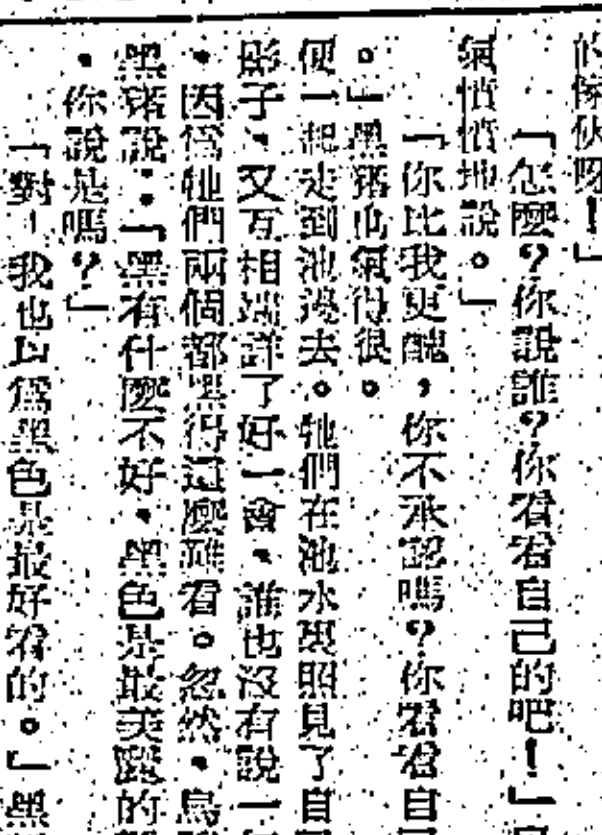 的傢伙呀！」
「怎麼？你說誰？你看看自己的吧！」
氣憤憤地說。」
「你比我更醜，你不承認嗎？你看看自
。」黑豬也氣得很。
便一起走到池邊去。牠們在池水裏照見了自
影子，又互相端詳了好一會，誰也沒有說一
，因爲牠們兩個都黑得這麼難看。忽然，烏
黑豬說：「黑有什麼不好，黑色是最美麗的
，你說是嗎？」
「對！我也以爲黑色是最好看的。」黑